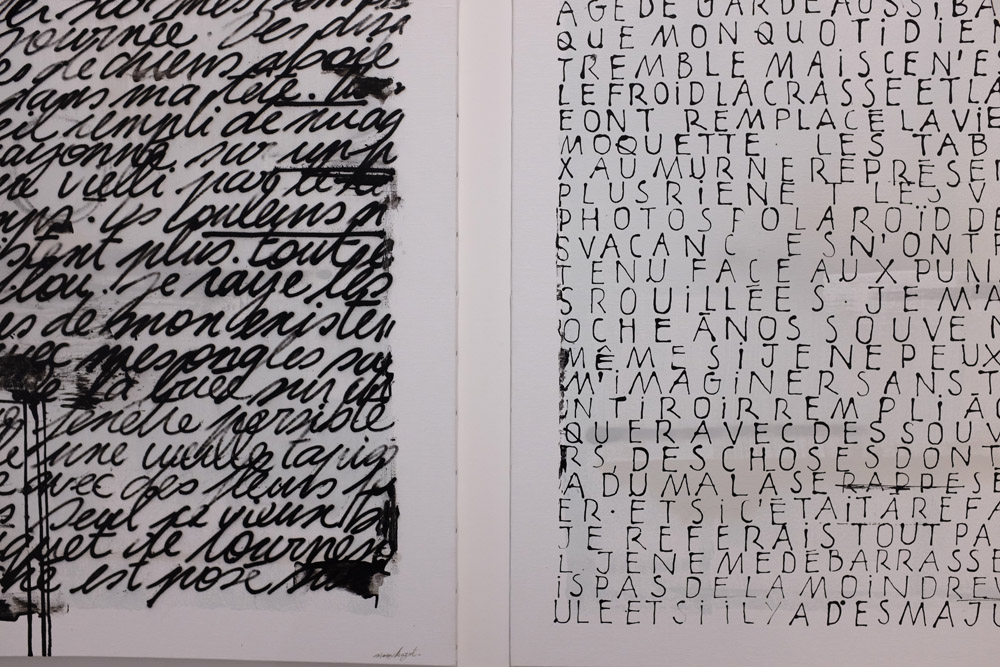 sur mes temps
journée. Des
es de chiens aboie
dans ma tête.
eil rempli de nuag
ayonne sur un p
vieilli par
Les couleurs n
istent plus. toutre
Je raye les
s de mon existen
avec mes ongles sur
la buée sur un
fenêtre
une vieille tapiss
e avec des fleurs
Seul ce vieux
quet de tournes
est posé
AGE DE GARDE AUSSI BA
QUE MON QUOTIDIEN
TREMBLE MAIS CE N'ES
LE FROID LA CRASSE ET LA
E ONT REMPLACE LA VIE
MOQUETTE LES TAB
X AU MUR NE REPRESE
PLUS RIEN E T LES V
PHOTOS POLAROÏD D
S VACANC ES N'ONT
TENU FACE AUX PUN
S ROUILLÉES. JE M'A
OCHE À NOS SOUVEN
MÊME SI JE NE PEUX
M'IMAGINER SANS T
N TIROIR REMPLI À
QUER AVEC DES SOUV
RS, DES CHOSES DONT
A DU MAL A SE RAPPESE
ER. ET SI C'ETAIT A REFA
JE REFERAIS TOUT PA
L JE NE ME DEBARRASSE
IS PAS DE LA MOINDRE
ULE ET SI IL Y A DES MAJU